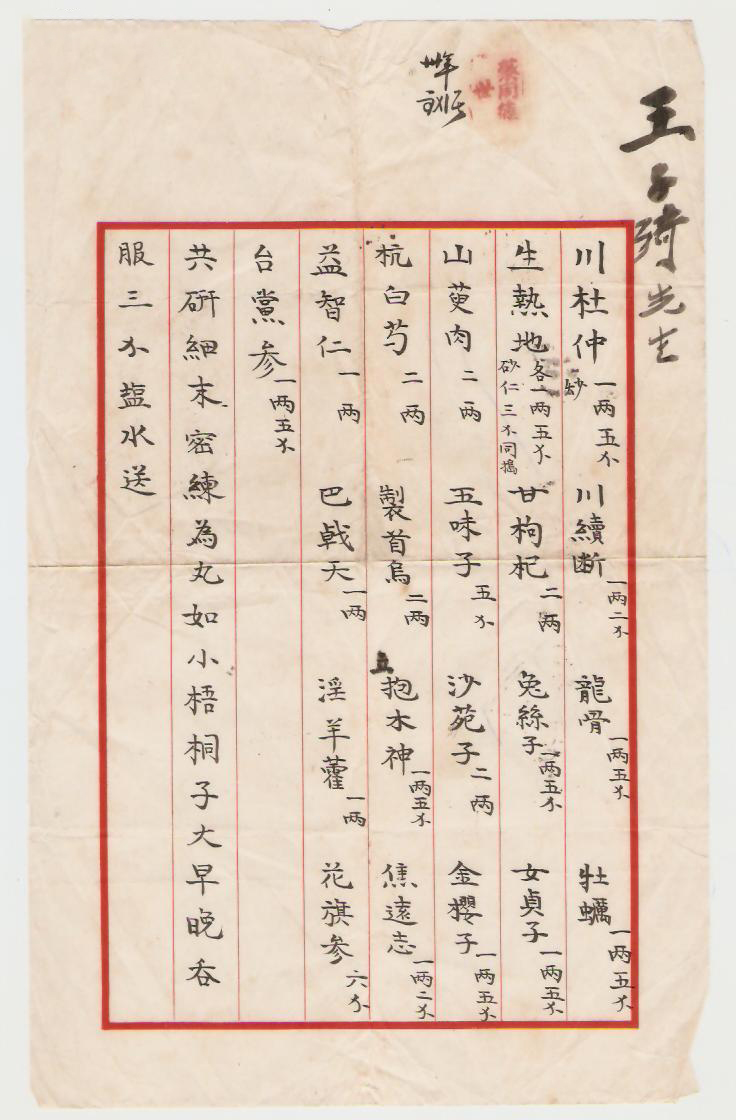 王子琦先生
川杜仲 炒 一两五分 川續断 一两二分 龍骨 一两五分 牡蠣 一两五分
生熟地 各一两五分 砂仁三分同搗 甘枸杞 二两 兔絲子 一两五分 女貞子 一两五分
山萸肉 二两 五味子 五分 沙苑子 二两 金櫻子 一两五分
杭白芍 二两 製首烏 二两 抱木神 一两五分 焦遠志 一两二分
益智仁 一两 巴戟天 一两 淫羊藿 一两 花旗参 六分
台黨参 一两五分
共研細末密練為丸如小梧桐子大早晚呑
服三分塩水送